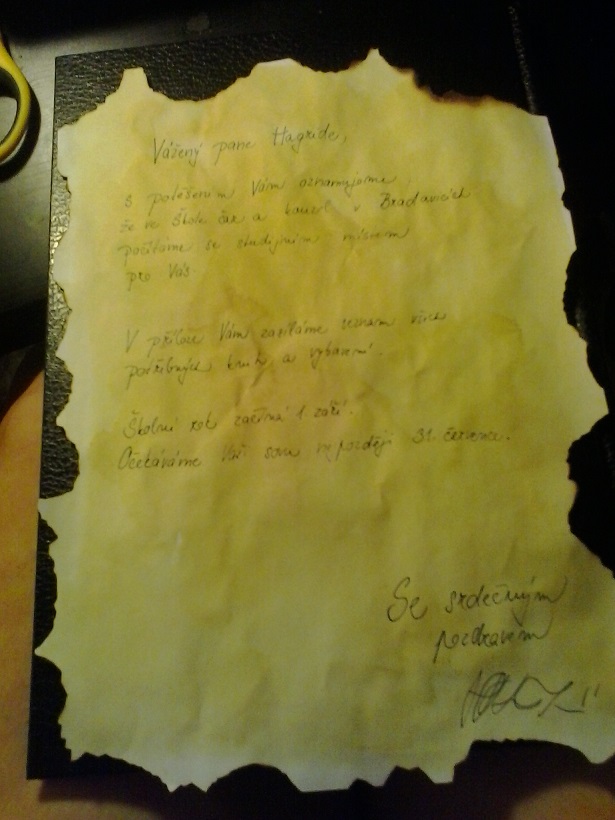 Vážený pane Hagride,
s potěšením Vám oznamujeme,
že ve Škole čar a kouzel v Bradavicích
počítáme se studijním místem
pro Vás.
V příloze Vám zasíláme seznam všech
potřebných knih a vybavení.
Školní rok začíná 1. září.
Očekáváme Vaši sovu nejpozději 31. července.
Se srdečným
pozdravem